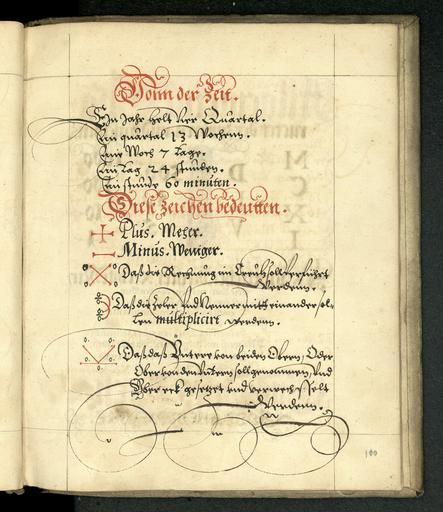 Vonn der Zeit.
Ein Jahr helt vier Quartal.
Ein quartal 13 Wochenn.
Eine Woch 7 tage.
Ein tag 24 stunden.
Ein stunde 60 minuten.
Diese zeichen bedeutten.
+ Plus. Meher.
— Minus. Weniger.
Daß die Rechnung im Creutz soll verfuhrt
werdenn.
Daß die zeler und Nenner mitt einander sol-
len multiplicirt werdenn.
Daß daß Untere von beiden Obern, Oder
Ober von den Untern soll genommen, Und
Uber eck gesetzet und verwechsselt
Werdenn.
100